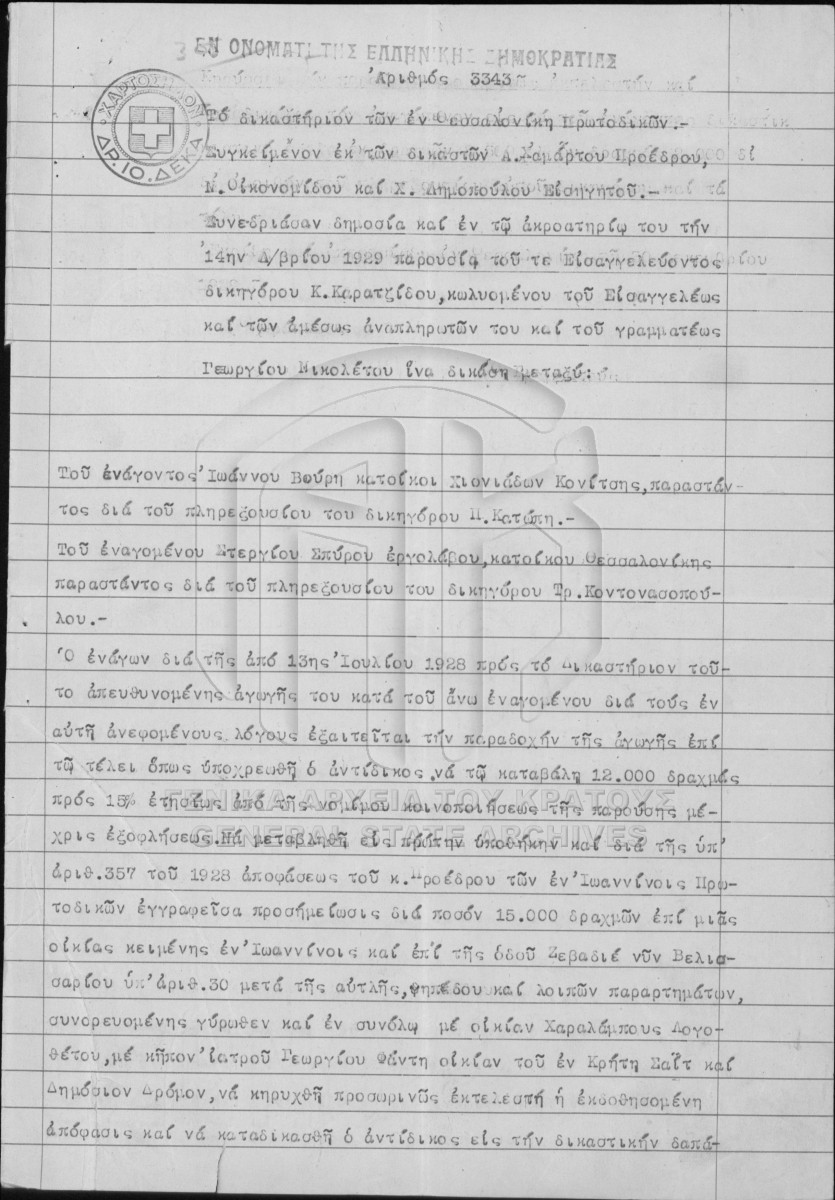 ΕΝ ΟΝΟΜΑΤΙ ΤΗΣ ΕΛΛΗΝΙΚΗΣ ΔΗΜΟΚΡΑΤΙΑΣ
Ἀριθμός 3343
ΧΑΡΤΟΣΗΜΟΝ
ΔΡ. 10. ΔΕΚΑ
Τό δικαστήριον τῶν ἐν Θεσσαλονίκῃ Πρωτοδικῶν.-
Συγκείμενον ἐκ τῶν δικαστῶν Α. Προέδρου,
Ν.Οἰκονομίδου καί Χ. Δημοπούλου Εἰσηγητοῦ.-
Συνεδριάσαν δημοσίᾳ καί ἐν τῷ ἀκροατηρίῳ του τήν
14ην Δ/βρίου 1929 παρουσίᾳ τοῦ τε Εἰσαγγελεύοντος
δικηγόρου Κ.Καρατζίδου,κωλυομένου τοῦ Εἰσαγγελέως
καί τῶν ἀμέσως ἀναπληρωτῶν του καί τοῦ γραμματέως
Γεωργίου Νικολέτου ἵνα δικάσῃ μεταξύ:
Τοῦ ἐνάγοντος Ἰωάννου Βούρη κατοίκοι Χιονιάδων Κονίτσης,παραστάν-
τος διά τοῦ πληρεξουσίου του δικηγόρου Π.Κατώπη.-
Τοῦ ἐναγομένου Στεργίου Σπύρου ἐργολάβου,κατοίκου Θεσσαλονίκης
παραστάντος διά τοῦ πληρεξουσίου του δικηγόρου Τρ.Κοντονασοπού-
λου.-
Ὁ ἐνάγων διά τῆς ἀπό 13ης Ἰουλίου 1928 πρός τό Δικαστήριον τοῦ-
το ἀπευθυνομένης ἀγωγῆς του κατά τοῦ ἄνω ἐναγομένου διά τούς ἐν
αὐτῇ ἀνεφομένους λόγους ἐξαιτεῖται τήν παραδοχήν τῆς ἀγωγῆς ἐπί
τῷ τέλει ὅπως ὑποχρεωθῇ ὁ ἀντίδικος νά τῷ καταβάλῃ 12.000 δραχμάς
πρός 15% ἐτησίως ἀπό τῆς νομίμου κοινοποιήσεως τῆς παρούσης μέ-
χρις ἐξοφλήσεως.Νά μεταβληθῇ εἰς πρώτην ὑποθήκην καί διά τῆς ὑπ'
ἀριθ.357 τοῦ 1928 ἀποφάσεως τοῦ κ.Προέδρου τῶν ἐν Ἰωαννίνοις Πρω-
τοδικῶν ἐγγραφεῖσα προσημείωσις διά ποσόν 15.000 δραχμῶν ἐπί μιᾶς
οἰκίας κειμένης ἐν Ἰωαννίνοις καί ἐπί τῆς ὁδοῦ Ζεβαδιέ νῦν Βελισ-
σαρίου ὑπ' ἀριθ.30 μετά τῆς αὐτλῆς,φηπέδου καί λοιπῶν παραρτημάτων,
συνορευομένης γύρωθεν καί ἐν συνόλῳ μέ οἰκίαν Χαραλάμπους Λογο-
θέτου,μέ κῆπον ἰατροῦ Γεωργίου Φάντη οἰκίαν τοῦ ἐν Κρήτῃ Σαΐτ καί
Δημόσιον Δρόμον,νά κηρυχθῇ προσωρινῶς ἐκτελεστή ἡ ἐκδοθησομένη
ἀπόφασις καί νά καταδικασθῇ ὁ ἀντίδικος εἰς τήν δικαστικήν δαπά-
ΓΕΝΙΚΑ ΑΡΧΕΙΑ ΤΟΥ ΚΡΑΤΟΥΣ
GENERAL STATE ARCHIVES